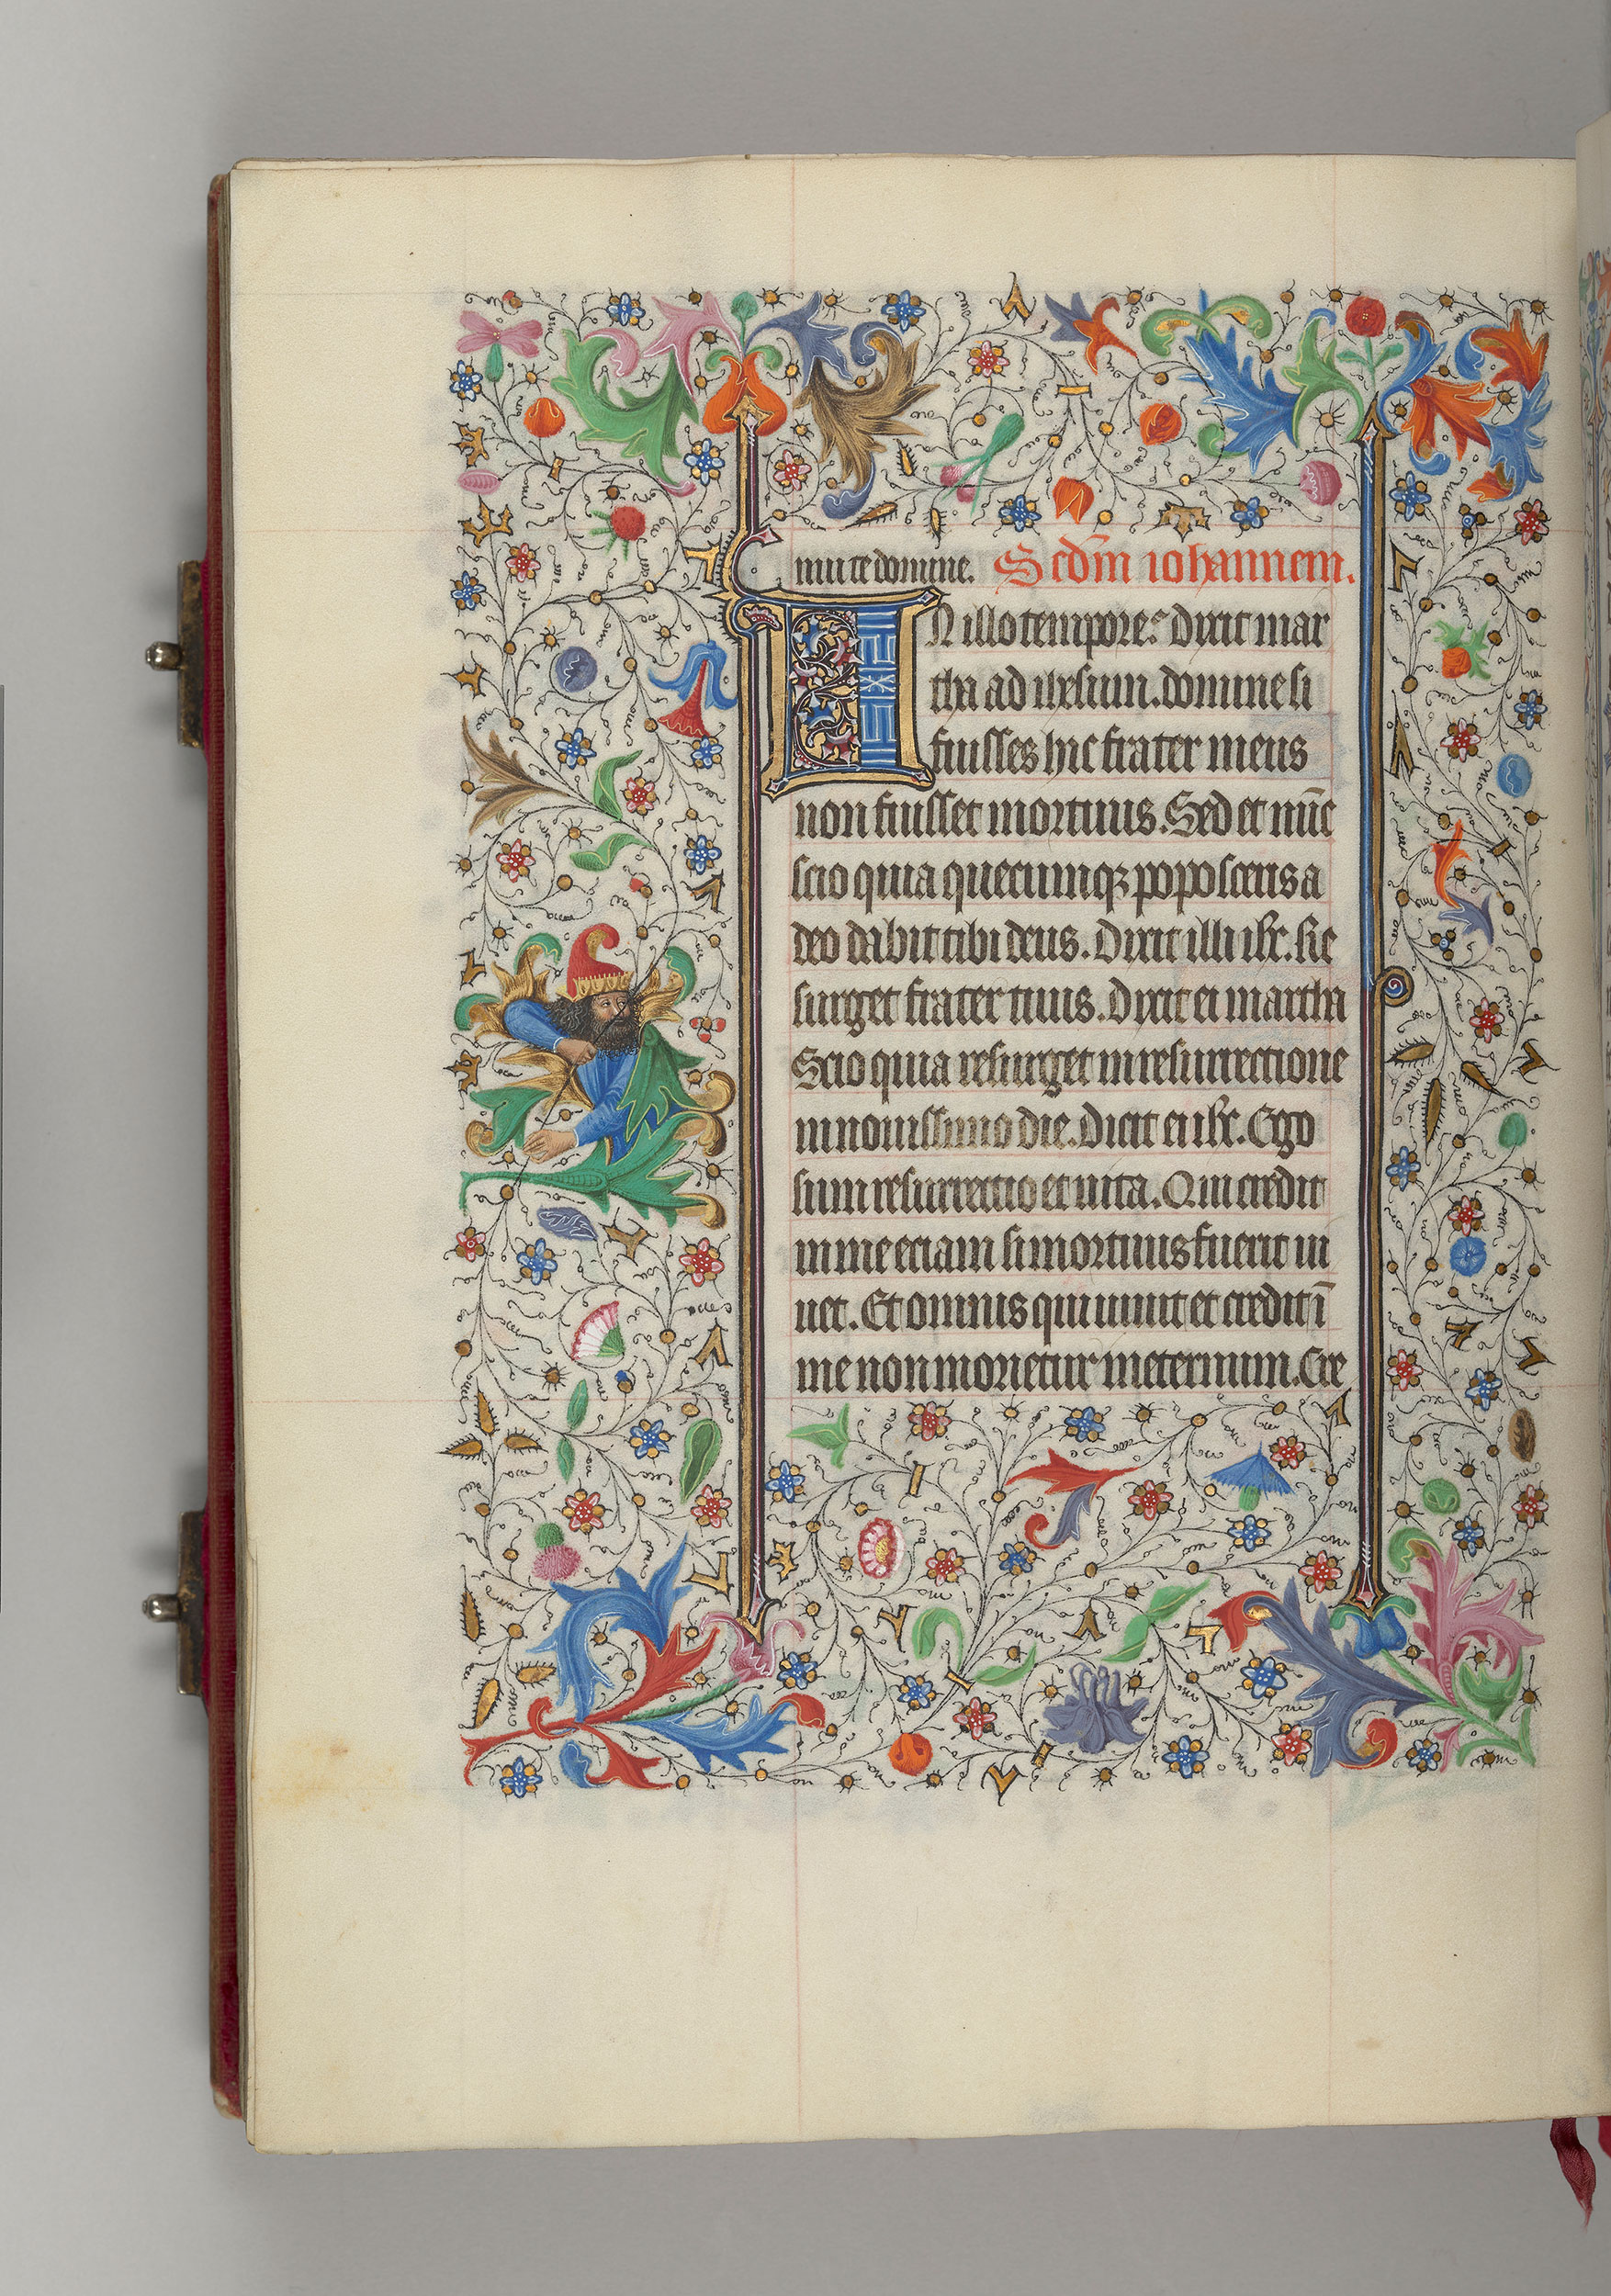 nuit te domine. Scdm̄ iohannem.
IN illo tempore. Dixit mar
tha ad ihesum. domine si
fuisses hic frater meus
non fuisset mortuus. Sed et nūc
scio quia quecumqꝫ poposceris a
deo dabit tibi deus. Dixit illi ihc̄. Re
surget frater tuus. Dixit ei martha
Scio quia resurget in resurrectione
in nouissimo die. Dicit ei ihc̄. Ego
sum resurrectio et uita. Qui credit
in me eciam si mortuus fuerit ui
uet. Et omnis qui uiuit et credit ī
me non morietur in eternum. Cre